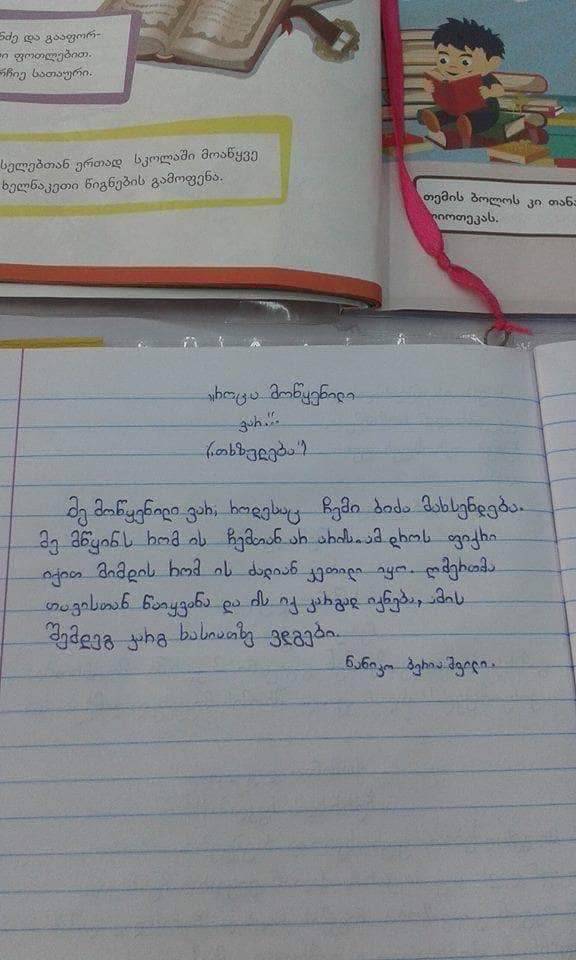 ნძე და გააფორ-
ი ფოთლებით.
რჩიე სათაური.
სელებთან ერთად სკოლაში მოაწყვე
ხელნაკეთი წიგნების გამოფენა.
თემის ბოლოს კი თანა
ლიოთეკას.
„როცა მოწყენილი
ვარ...“
(„თხზულება“)
მე მოწყენილი ვარ, როდესაც ჩემი ბიძა მახსენდება.
მე მწყინს რომ ის ჩემთან არ არის. ამ დროს ფიქრი
იქით მიმდის რომ ის ძალიან კეთილი იყო. ღმერთმა
თავისთან წაიყვანა და ის იქ კარგად იქნება, ამის
შემდეგ კარგ ხასიათზე ვდგები.
ნანიკო ბერიაშვილი.